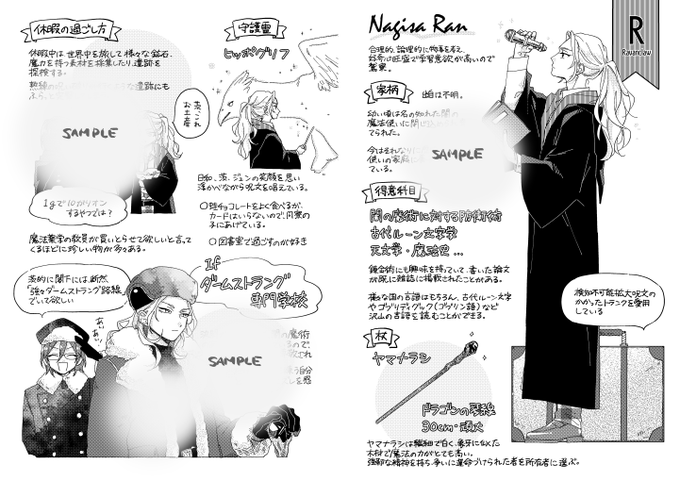 休暇の過ごし方
休暇中は世界中を旅して様々な鉱石、
魔力を持つ素材を採集したり、遺跡を
探検する。
SAMPLE
茨、これ
お土産
1gで10ガリオン
するやつでは?
魔法薬学の教員が買いとらせて欲しいと言って
くるほどに珍しい物が多々ある。
守護霊
ヒッポグリフ
日和、茨、ジュンの笑顔を思い
浮かべながら呪文を唱えている。
カードはいらないので、同寮の
子にあげている。
○図書室で過ごすのが好き
茨的に閣下には断然
強々ダームストラング路線
でいて欲しい
あっ
あっ
If
ダームストラング
専門学校
の魔術
SAMPLE
Nagisa Ran
R
Ravenclaw
合理的、論理的に物事を考え、
好奇心旺盛で学習意欲が高いので
鷲寮。
家柄
出自は不明。
幼い頃は名の知れた闇の
魔法使いに
てられた。
SAMPLE
得意科目
闇の魔術に対する防衛術
古代ルーン文字学
天文学・魔法史…
錬金術にも興味を持っていて、書いた論文
が既に雑誌に掲載されたことがある。
様々な国の言語はもちろん、古代ルーン文字
やゴブリディグック(ゴブリン語)など
沢山の言語を読むことができる。
検知不可能拡大呪文の
かかったトランクを愛用
している
杖
ヤマナラシ
ドラゴンの琴線
30cm・頑丈
ヤマナラシは繊細で白く、象牙に似た
木材で魔法の力がとても高い。
強靭な精神を持ち争いに運命づけられた者を所有者に選ぶ。